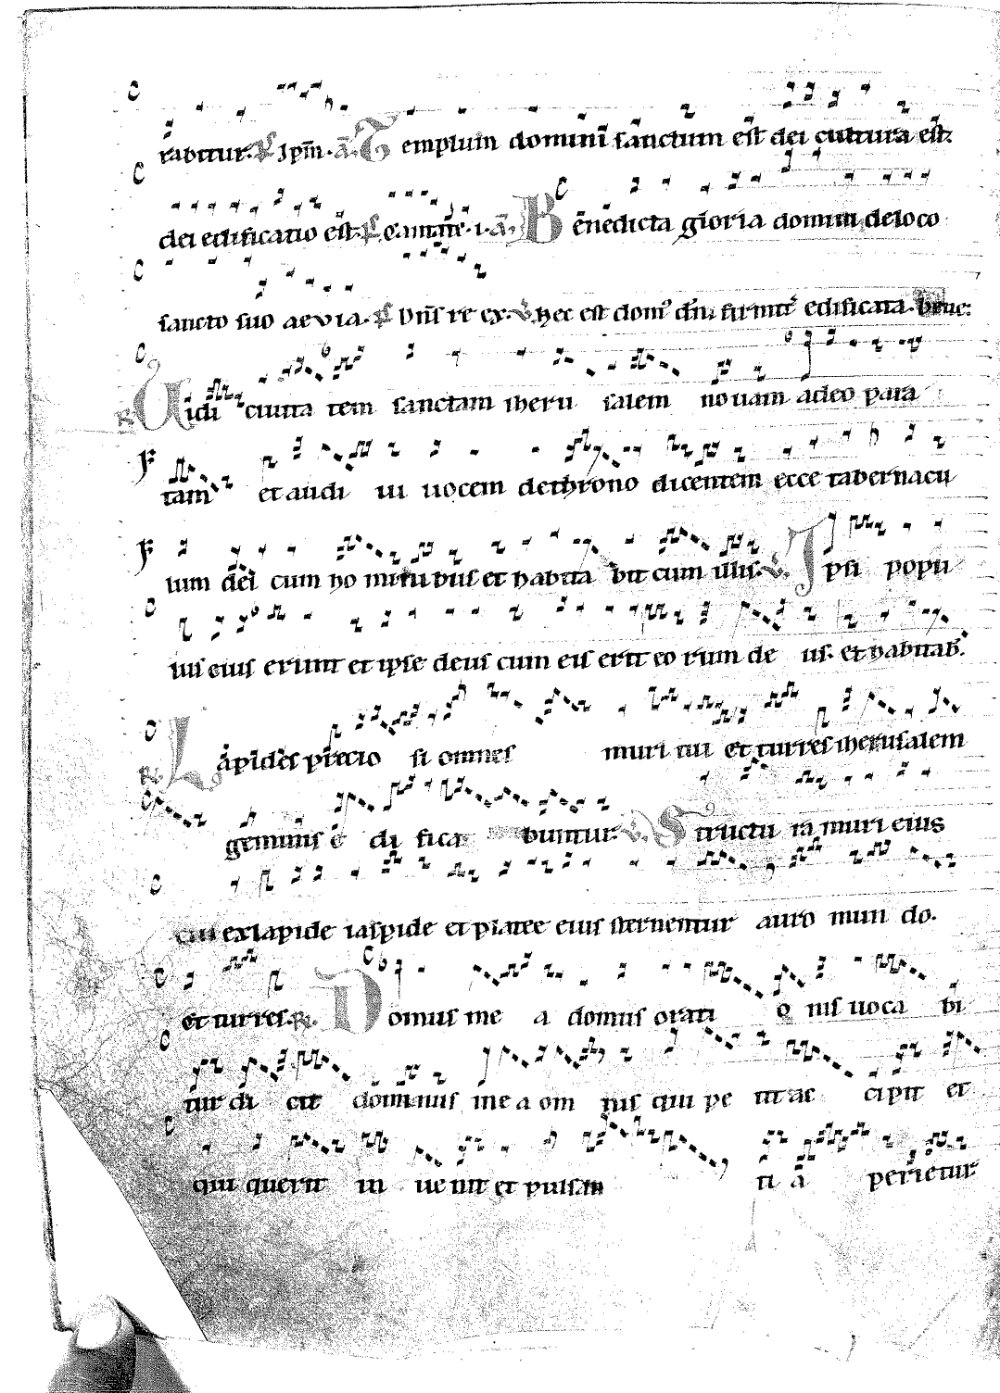 rabitur. Ps Ipm̄. ā. Templum domini sanctum est dei cultura est.
dei edificatio est. Ps Cantate. i. ā. Benedicta gloria domini de loco
sancto suo aevia. Ps Dn̄s re ex. V. hec est dom' dn̄i firmit' edificata. bene:
R. Uidi ciuita tem sanctam iheru salem nouam adeo para
tam et audi ui uocem dethrono dicentem ecce tabernacu
lum dei cum ho minibus et habita bit cum illis. V. Ipsi popu
lus eius erunt et ipse deus cum eis erit eo rum de us. et habitab'.
R. Lapides precio si omnes muri tui et turres iherusalem
gemmis e di fica buntur. V. Structu ra muri eius
exlapide iaspide et platee eius sternentur auro mun do.
et turres. R. Domus me a domus orati o nis uoca bi
tur di cit dominus me a om nis qui pe tit ac cipit et
qui querit in ue nit et pulsan ti a perietur